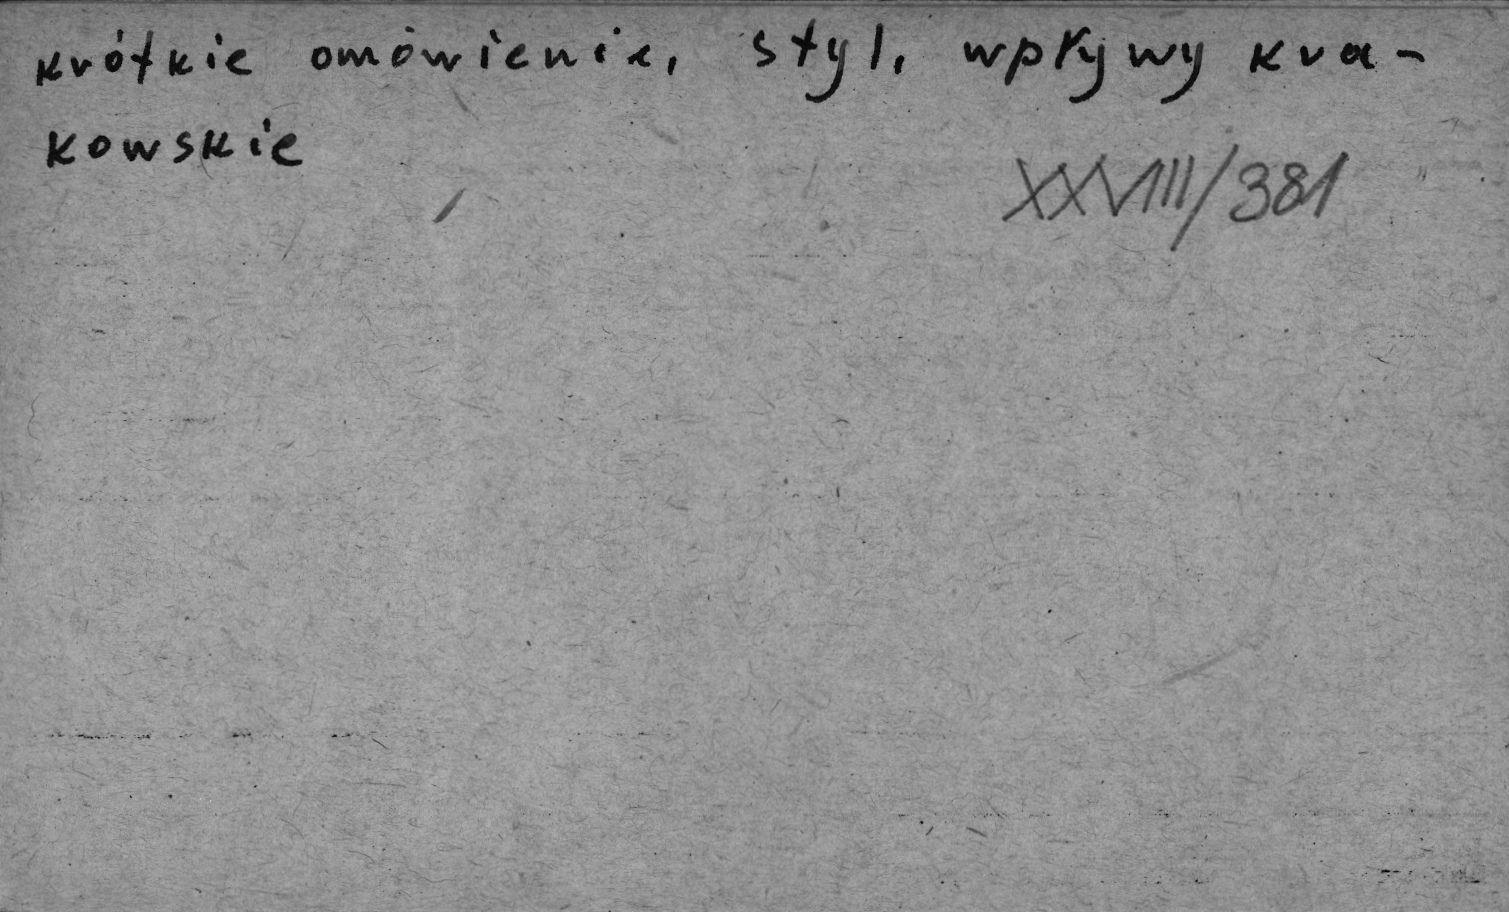 krótkie omówienie, styl, wpływy kra-
kowskie
XXVIII/381